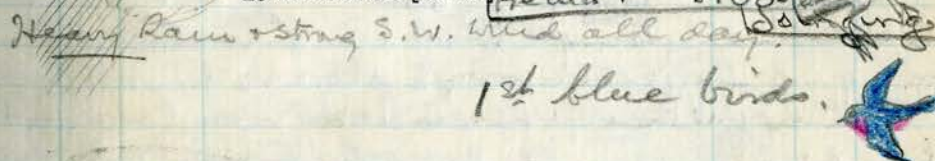 Heavy Rain & strong S.W. Wind all day.
1st blue birds.